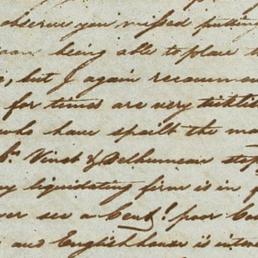 observe you missed putting
being able to place
, but I again recomm
for times are very ticklis
who have spoilt the ma
Vinct & Delhumeau stop
liquidating firm is in f
ver see a Cent! poor
and English house is